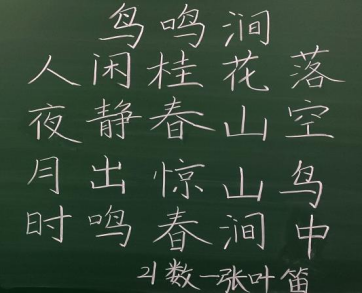 鸟鸣涧
人闲桂花落
夜静春山空
月出惊山鸟
时鸣春涧中
21数一张叶笛